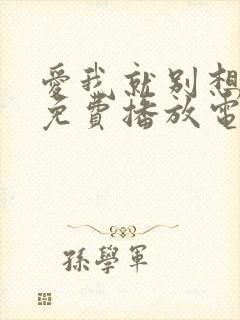 愛我就別想
免費播放電
孫學軍